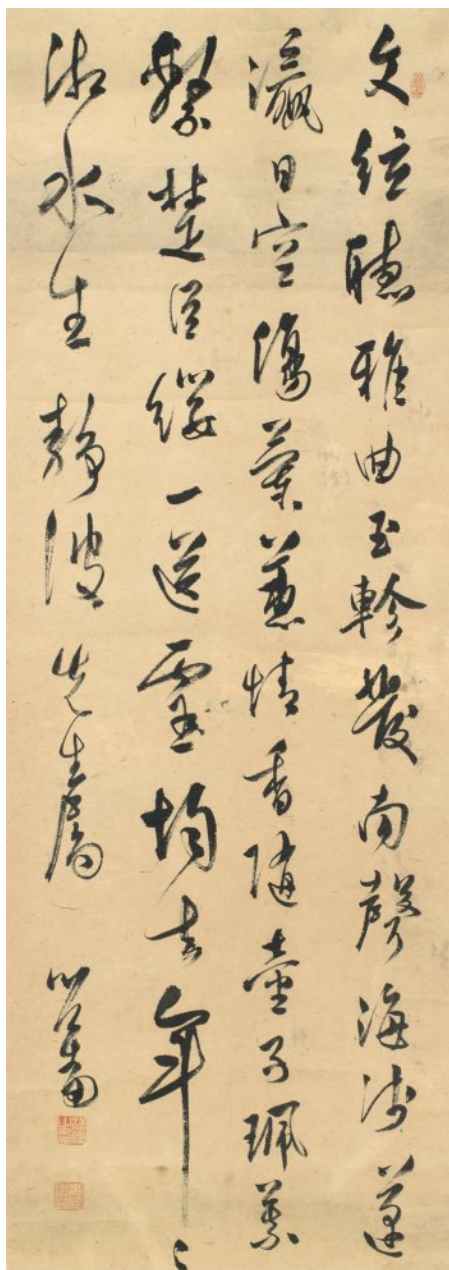 文絃聽雅曲玉軫發南聲海淺蓬
瀛日空傷蘭蕙情香隨童子珮葉
繫楚臣纓一送靈均去年〻
湘水生 靜波先生屬 心畬